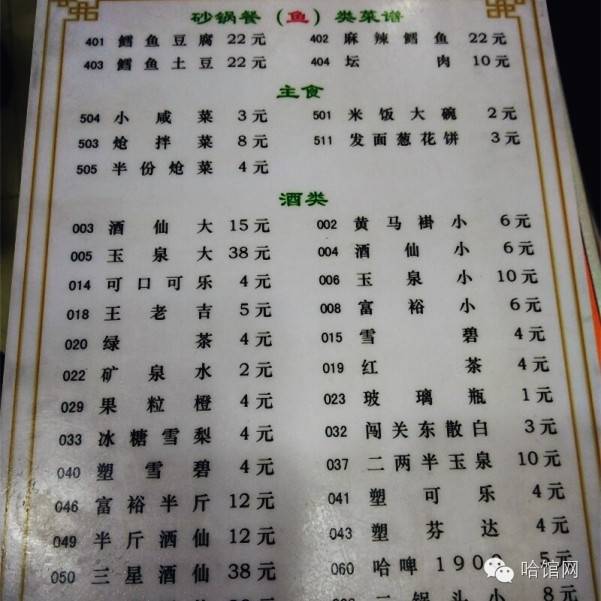 砂锅餐（鱼）类菜谱
401 鳕鱼豆腐 22元 402 麻辣鳕鱼 22元
403 鳕鱼土豆 22元 404 坛肉 10元
主食
504 小咸菜 3元 501 米饭大碗 2元
503 炝拌菜 8元 511 发面葱花饼 3元
505 半份炝菜 4元
酒类
003 酒仙大 15元 002 黄马褂小 6元
005 玉泉大 38元 004 酒仙小 6元
014 可口可乐 4元 006 玉泉小 10元
018 王老吉 5元 008 富裕小 6元
020 绿茶 4元 015 雪碧 4元
022 矿泉水 2元 019 红茶 4元
029 果粒橙 4元 023 玻璃瓶 1元
033 冰糖雪梨 4元 032 闯关东散白 3元
040 塑雪碧 4元 037 二两半玉泉 10元
046 富裕半斤 12元 041 塑可乐 4元
049 半斤酒仙 12元 043 塑芬达 4元
050 三星酒仙 38元 060 哈啤1900 5元
二锅头小 8元
哈馆网